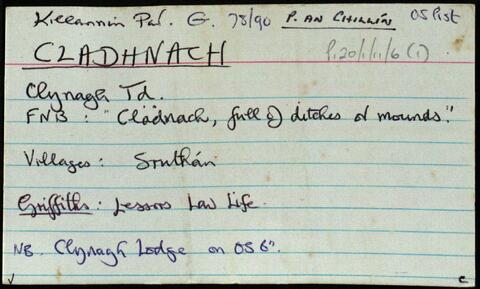 Killannin Par. G. 78/90 P. AN CHILLÍN OS 1st
CLADHNACH P120/1/11/6 (1)
Clynagh Td.
FNB : "Cladnach, full of ditches or mounds."
Villages : Sruthán
Griffiths : Lessors Law Life.
NB. Clynagh Lodge on OS 6".